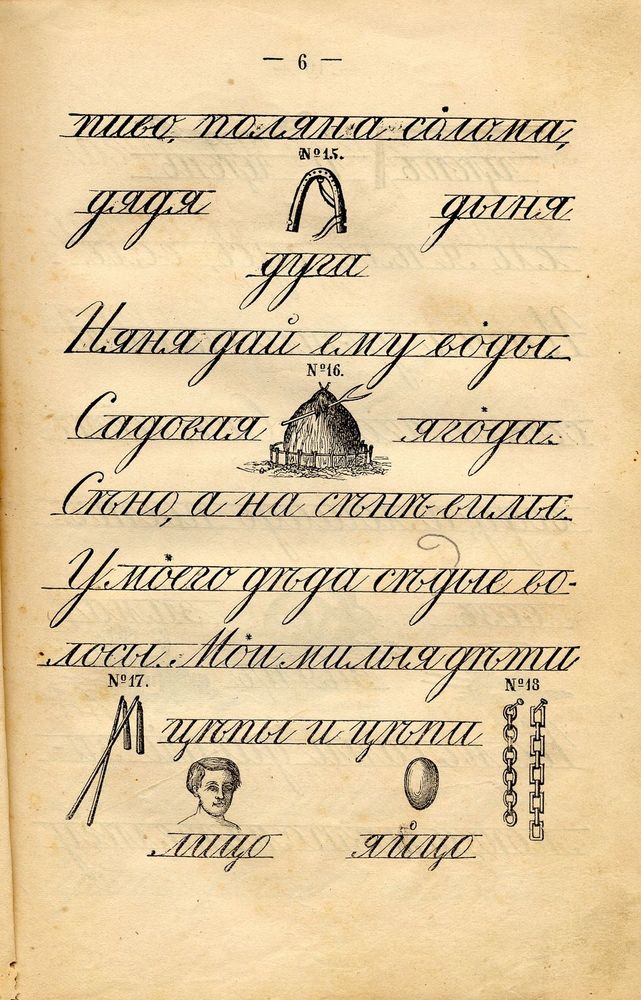 — 6 —
пиво, поляна солома,
№ 15.
дядя дыня
дуга
Няня дай ему воды.
№ 16.
Садовая ягода.
Сѣно, а на сѣнѣ вилы.
У моего дѣда сѣдые во-
лосы. Мои милыя дѣти
№ 17. № 18
цѣпы и цѣпи
лицо яйцо